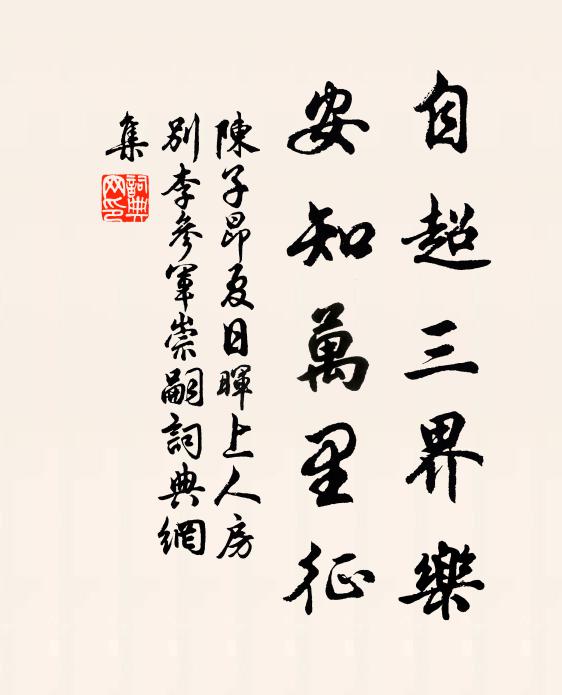 自超三界樂
安知萬里征
陳子昂夏日暉上人房
別李參軍崇嗣詞典網
集
詞典
网印